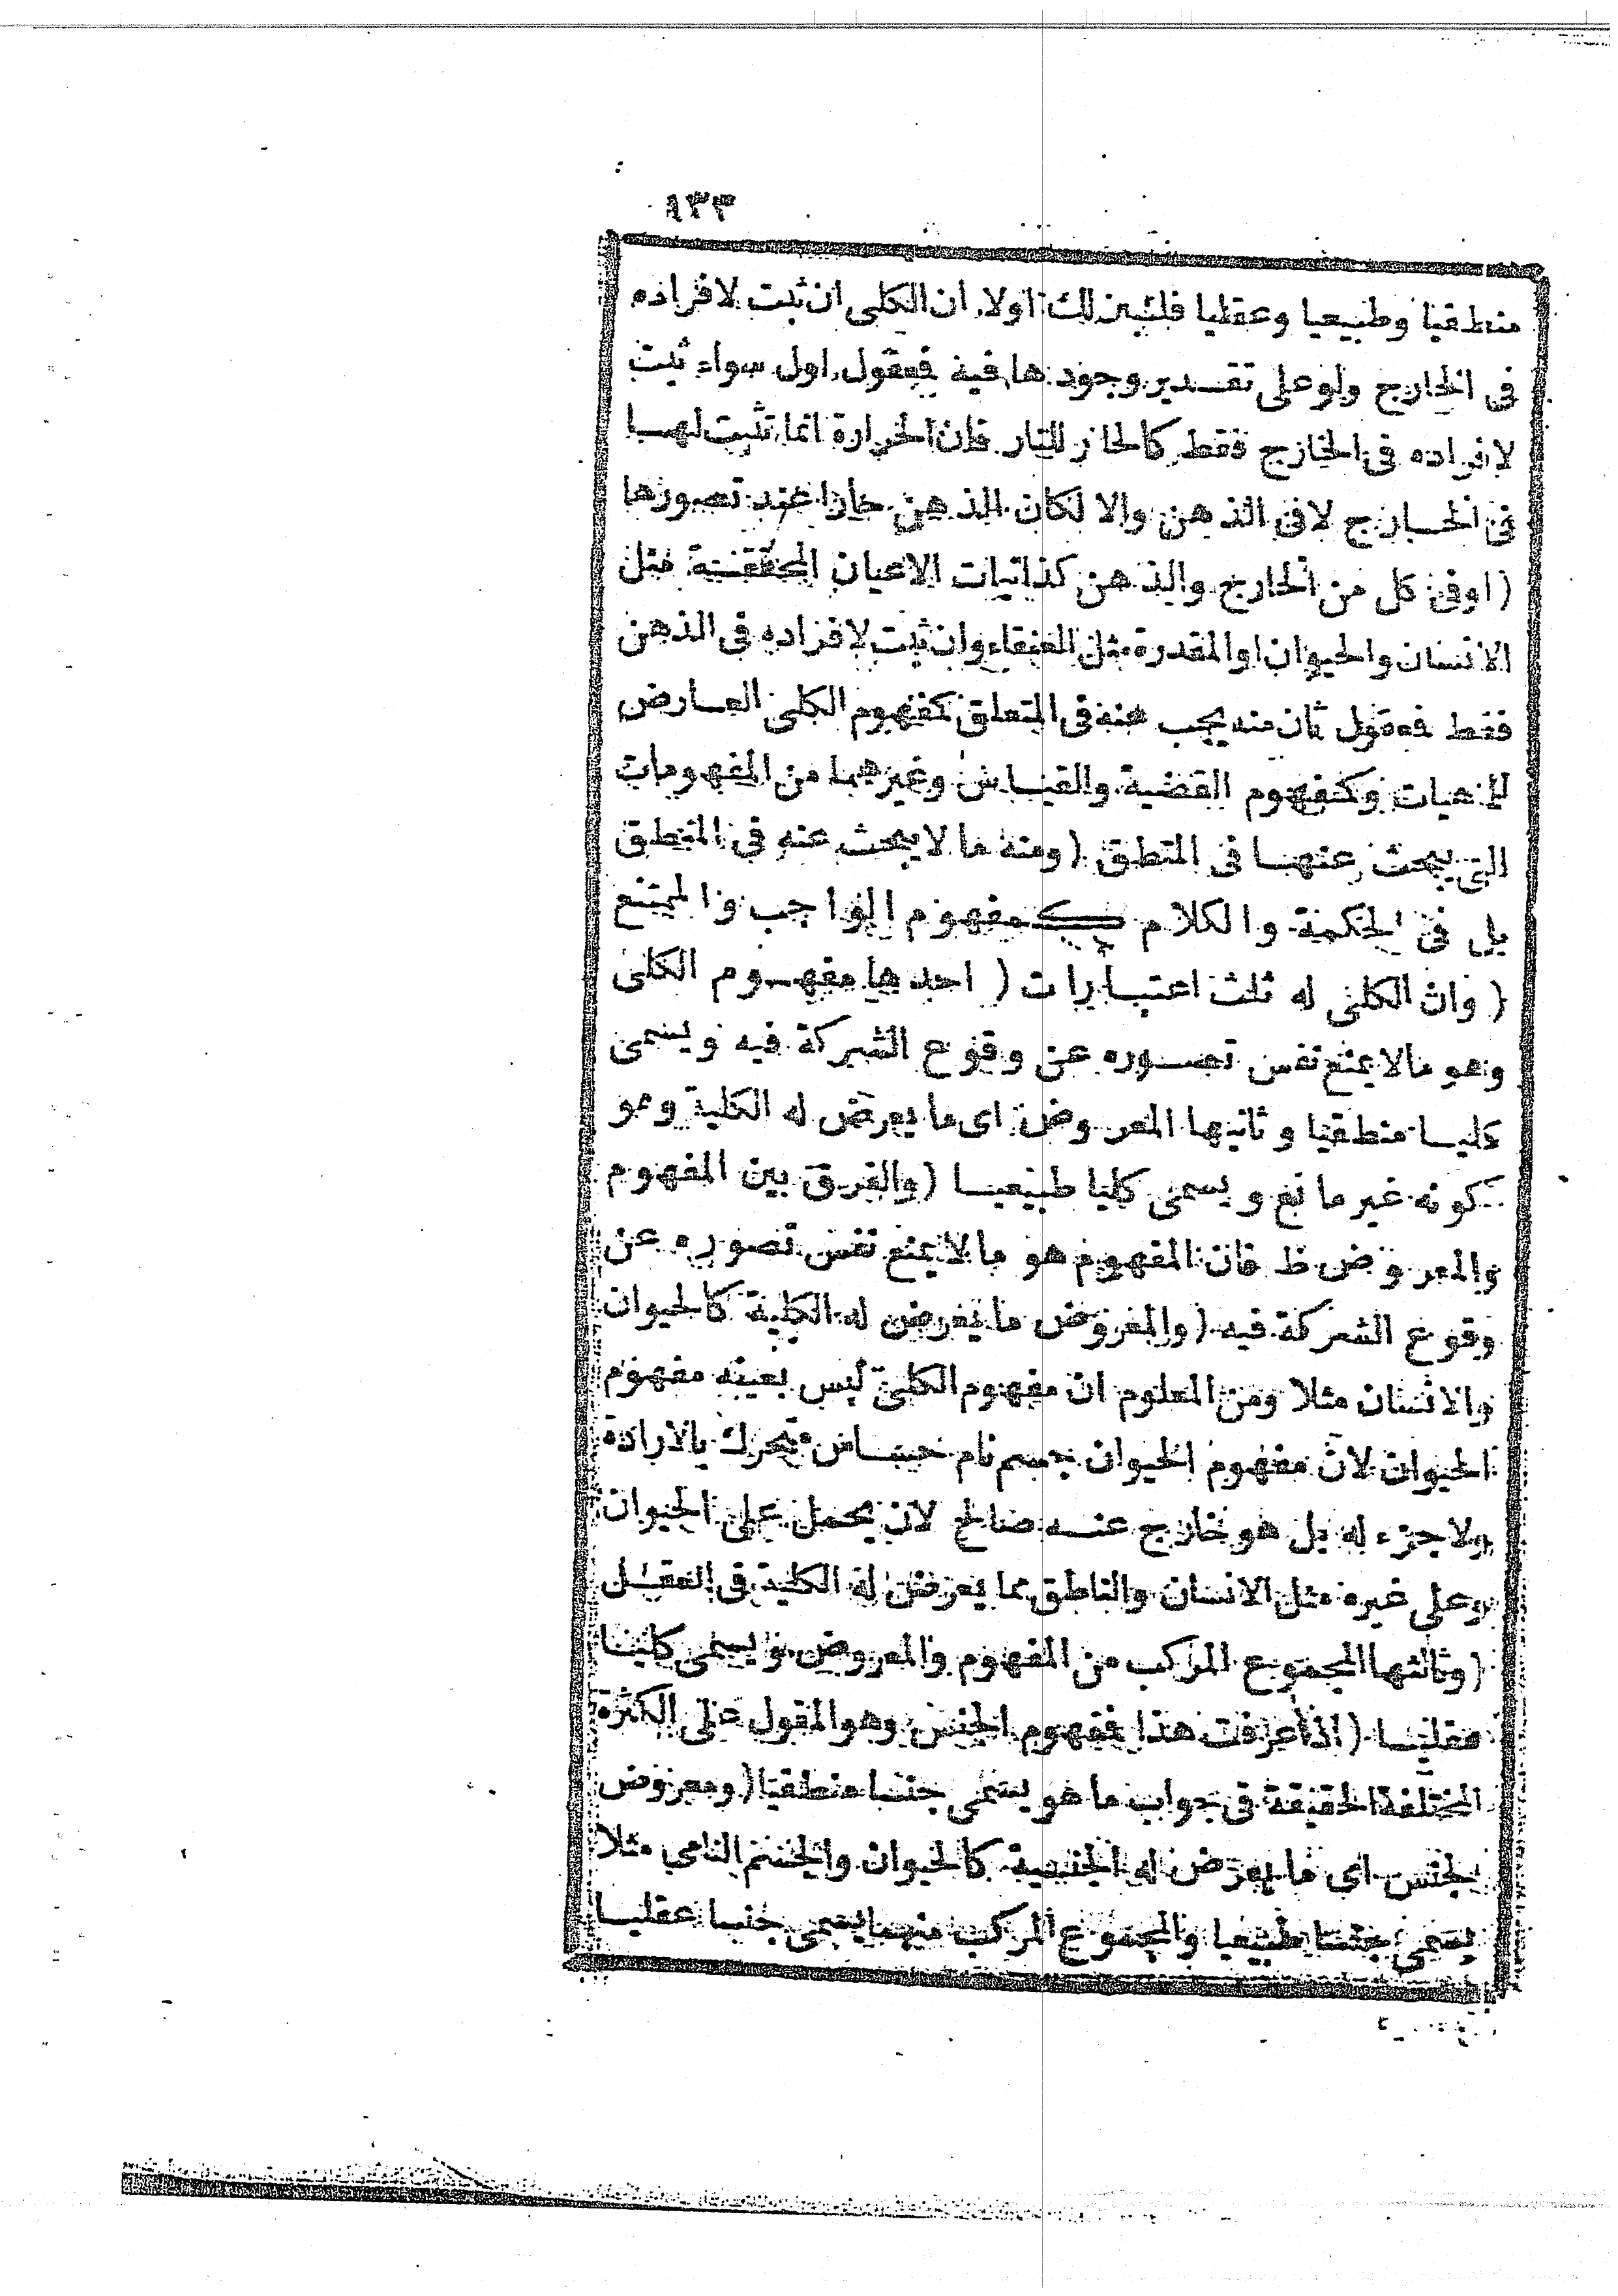 ٩٣٣
منطقيا وطبيعيا وعقليا فلنبين لك اولا ان الكلى ان ثبت لافراده
فى الخارج ولو على تقدير وجودها فيه فمعقول اول سواء ثبت
لافراده فى الخارج فقط كالحار للنار فان الحرارة انما تثبت لها
فى الخارج لافى الذهن والا لكان الذهن حارا عند تصورها
(اوفى كل من الخارج والذهن كذاتيات الاعيان المحققة مثل
الانسان والحيوان اوالمقدرة مثل العنقاء وان ثبت لافراده فى الذهن
فقط فمعقول ثان منه يجب عنه فى المتعلق كمفهوم الكلى العارض
للماهيات وكمفهوم القضية والقياس وغيرهما من المفهومات
التى يبحث عنها فى المنطق (ومنه ما لايبحث عنه فى المنطق
بل فى الحكمة والكلام كمفهوم الواجب والممتنع
(وان الكلى له ثلث اعتبارات (احدها مفهوم الكلى
وهو مالايمنع نفس تصوره عن وقوع الشركة فيه ويسمى
كليا منطقيا وثانيها المعروض اى ما يعرض له الكلية وهو
كونه غير مانع ويسمى كليا طبيعيا (والفرق بين المفهوم
والمعروض ظ فان المفهوم هو ما لايمنع نفس تصوره عن
وقوع الشركة فيه (والمعروض ما يعرض له الكلية كالحيوان
والانسان مثلا ومن المعلوم ان مفهوم الكلى ليس بعينه مفهوم
الحيوان لان مفهوم الحيوان جسم نام حساس متحرك بالارادة
ولاجزء له بل هو خارج عنه صالح لان يحمل على الحيوان
وعلى غيره مثل الانسان والناطق مما يعرض له الكلية فى العقل
(وثالثها المجموع المركب من المفهوم والمعروض ويسمى كليا
عقليا (اذا عرفت هذا فمفهوم الجنس وهو المقول على الكثرة
المختلفة الحقيقة فى جواب ما هو يسمى جنسا منطقيا (ومعروض
الجنس اى ما يعرض له الجنسية كالحيوان والجسم النامى مثلا
يسمى جنسا طبيعيا والمجموع المركب منهما يسمى جنسا عقليا